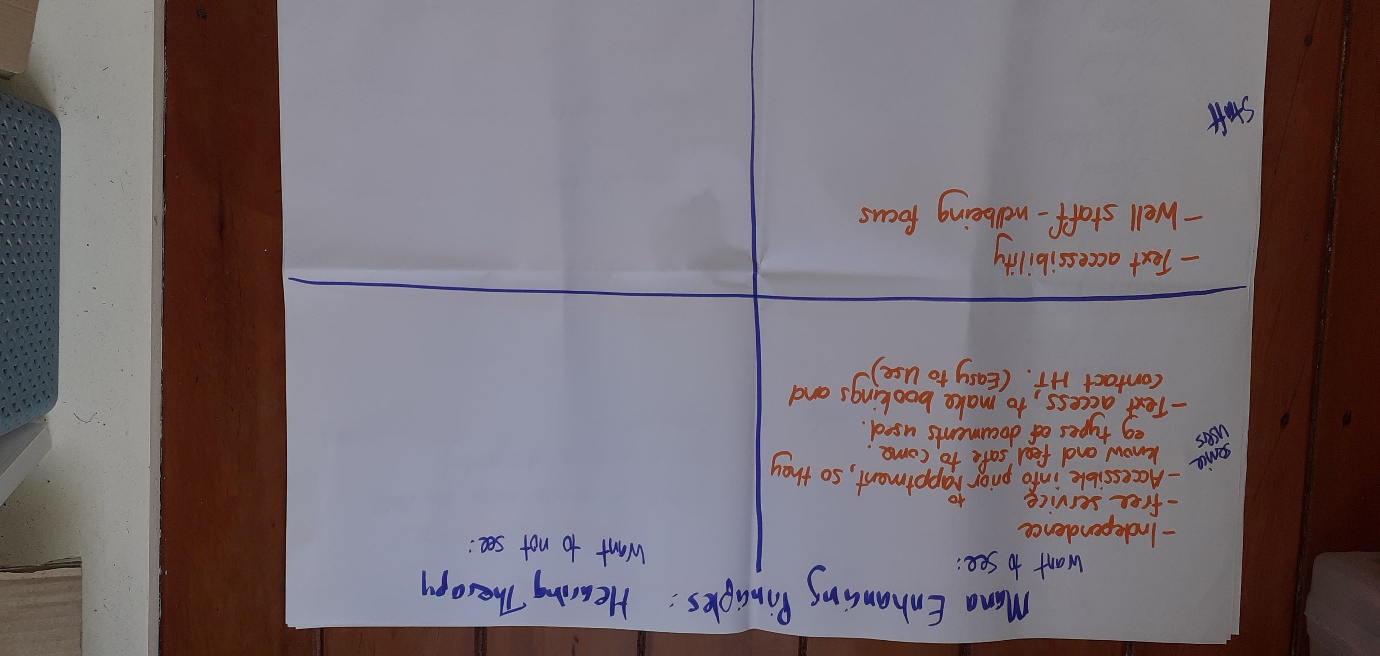 Mana Enhancing Principles: Hearing Therapy
Want to see:
Want to not see:
service
users
- Independence
- free service
- Accessible info prior to apptment, so they
know and feel safe to come.
eg types of documents used.
- Text access, to make bookings and
contact HT. (Easy to use)
Staff
- Text accessibility
- Well staff - welbeing focus